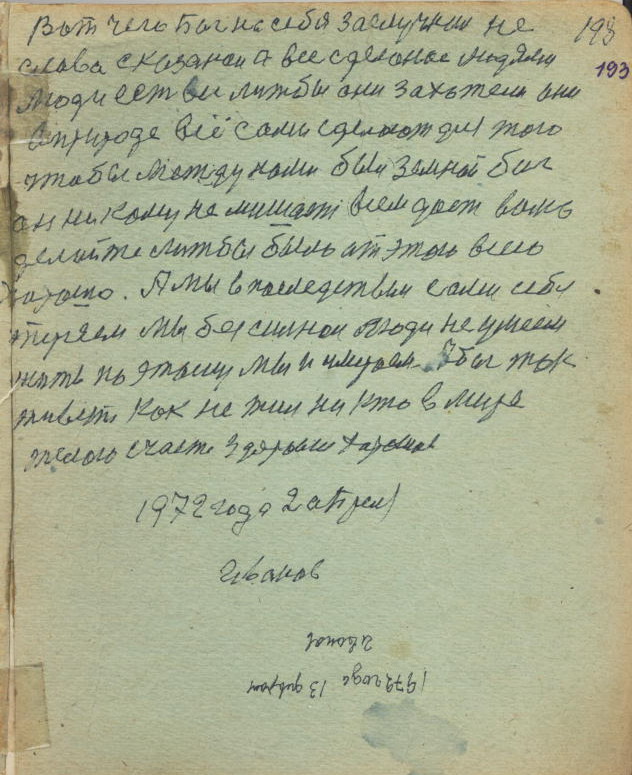 Вот чего Бог на себя заслужил не 193
слова сказаной а все сделоное людями 193
люди есть вы лижбы они захотели они
вприроде всё сами сделают для того
чтобы между нами был земной бог
он никому не мишает всем дает вожь
делайте лижбы было от этого всего
хорошо. А мы впоследствии сами себя
теряем мы бессилнои люди не умеем
жить по этому мы и умераем. Због так
живети как не жил ни кто в мире
желаю счасте здоровии хорошое
1972 года 2 апреля
Иванов
Иванов
1972 года 13 февраля